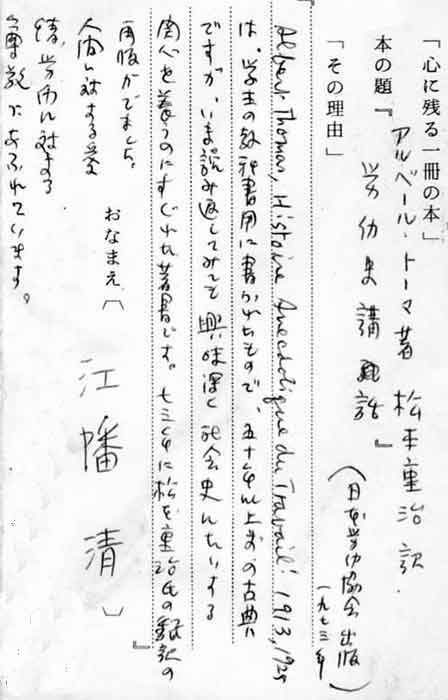 「心に残る一冊の本」
アルベール・トーマ著 松本重治訳
本の題『労働史講話』
（日本労働協会出版
一九七三年）
「その理由」
Albert Thomas, Histoire Anecdotique du Travail. 1913, 1925
は、学生の教科書用に書かれたもので、五十年以上前の古典
ですが、いま読み返してみても興味深く社会史にたいする
関心を養うのにすぐれた著書です。七三年に松本重治氏の翻訳の
再版がでました。
人間に対する愛
情、労働に対する
尊敬にあふれています。
おなまえ〔 江幡 清 〕』